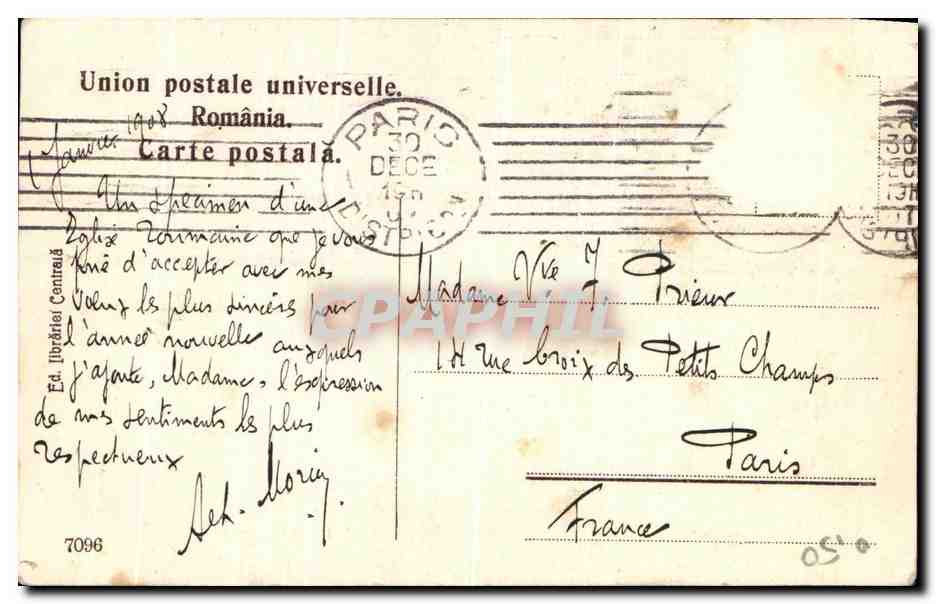 Union postale universelle.
România.
Carte postală.
1 Janvier 1908
Un specimen d'une
Eglise roumaine que je vous
prie d'accepter avec mes
voeux les plus sincères pour
l'année nouvelle auxquels
j'ajoute, Madame, l'expression
de mes sentiments les plus
respectueux
Ach. Morin
7096
Ed. librăriei Centrală
PARIS
30
DECE
19H
DISTRIBON
Madame Vve J. Prieur
14 rue Croix des Petits Champs
Paris
France
CPAPHIL